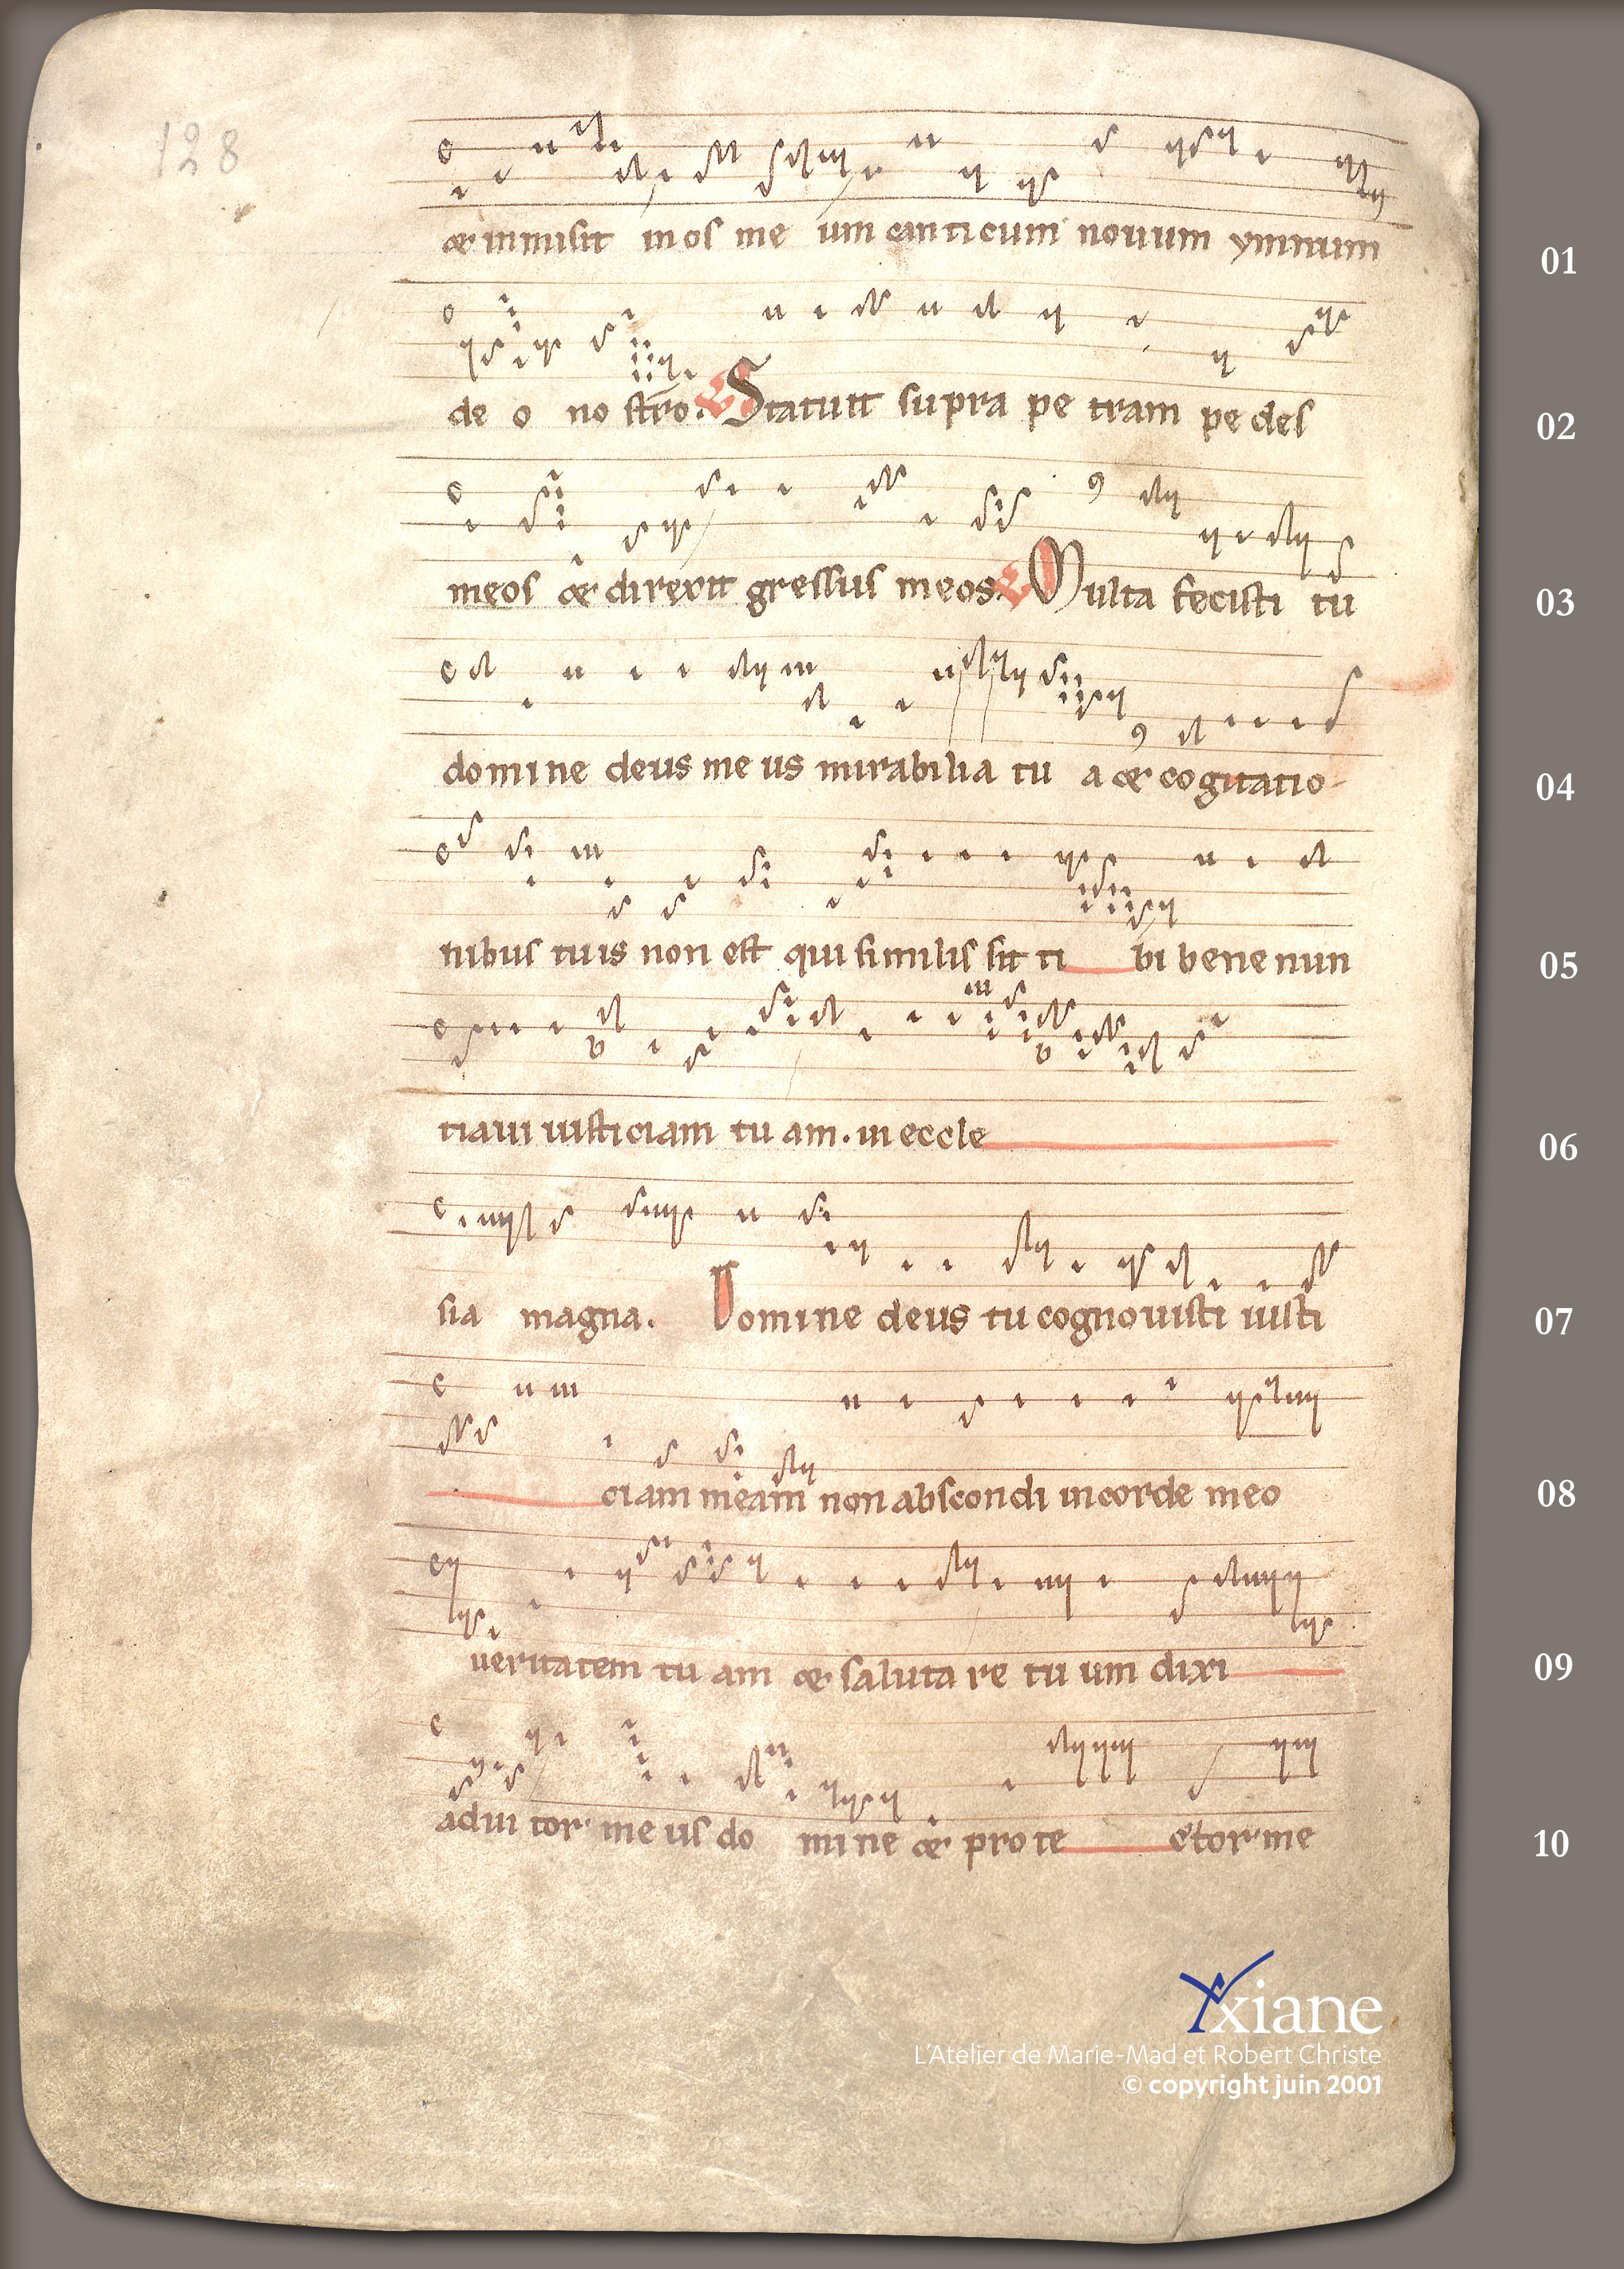 128
& inmisit in os me um canticum nouum ymnum
01
de o no stro. V Statuit supra pe tram pe des
02
meos & direxit gressus meos. V Multa fecisti tu
03
domine deus me us mirabilia tu a & cogitatio-
04
nibus tuis non est qui similis sit ti bi bene nun
05
tiaui iusticiam tu am. in eccle
06
sia magna. Domine deus tu cognouisti iusti
07
ciam meam non abscondi in corde meo
08
ueritatem tu am & saluta re tu um dixi
09
adiu tor me us do mine & pro te ctor me
10
Yxiane
L'Atelier de Marie-Mad et Robert Christe
© copyright juin 2001